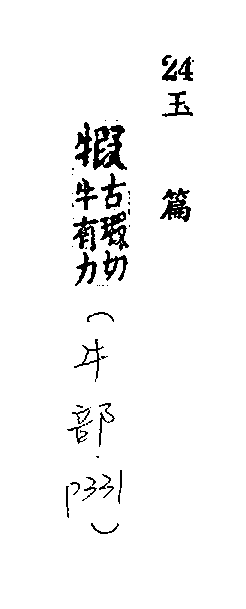 24
玉篇
古瑕切
牛有力
(牛部.p331)